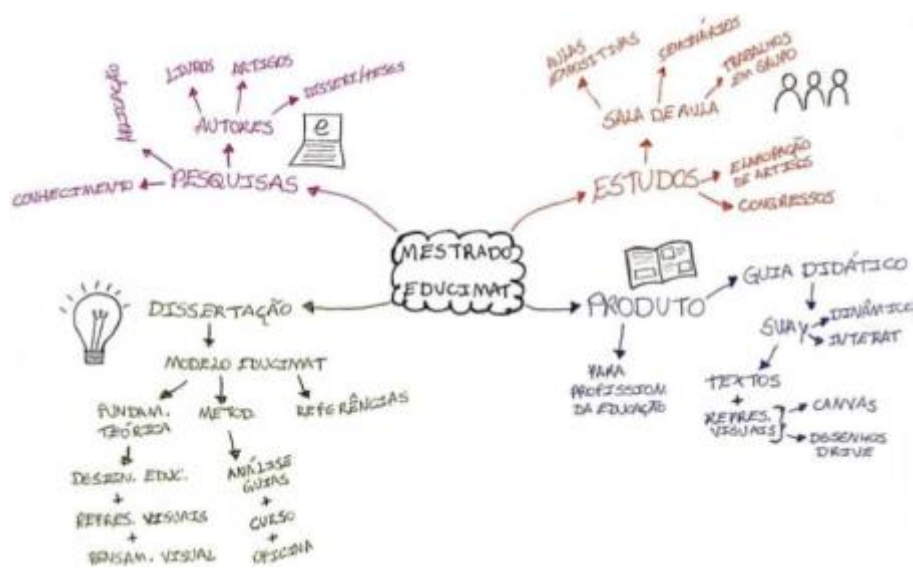 MESTRADO
EDUCIMAT
PESQUISAS
CONHECIMENTO
APLICAÇÃO
AUTORES
LIVROS
ARTIGOS
DISSERT/TESES
e
ESTUDOS
SALA DE AULA
AULAS
EXPOSITIVAS
SEMINÁRIOS
TRABALHOS
EM GRUPO
ELABORAÇÃO
DE ARTIGOS
CONGRESSOS
DISSERTAÇÃO
MODELO EDUCIMAT
FUNDAM.
TEÓRICA
METOD.
REFERÊNCIAS
DESIGN. EDUC.
+
REPRES. VISUAIS
+
PENSAM. VISUAL
ANÁLISE
GUIAS
+
CURSO
+
OFICINA
PRODUTO
PARA
PROFISSION.
DA EDUCAÇÃO
GUIA DIDÁTICO
DINÂMICO
INTERAT
TEXTOS
+
REPRES.
VISUAIS
CANVAS
DESENHOS
DRIVE